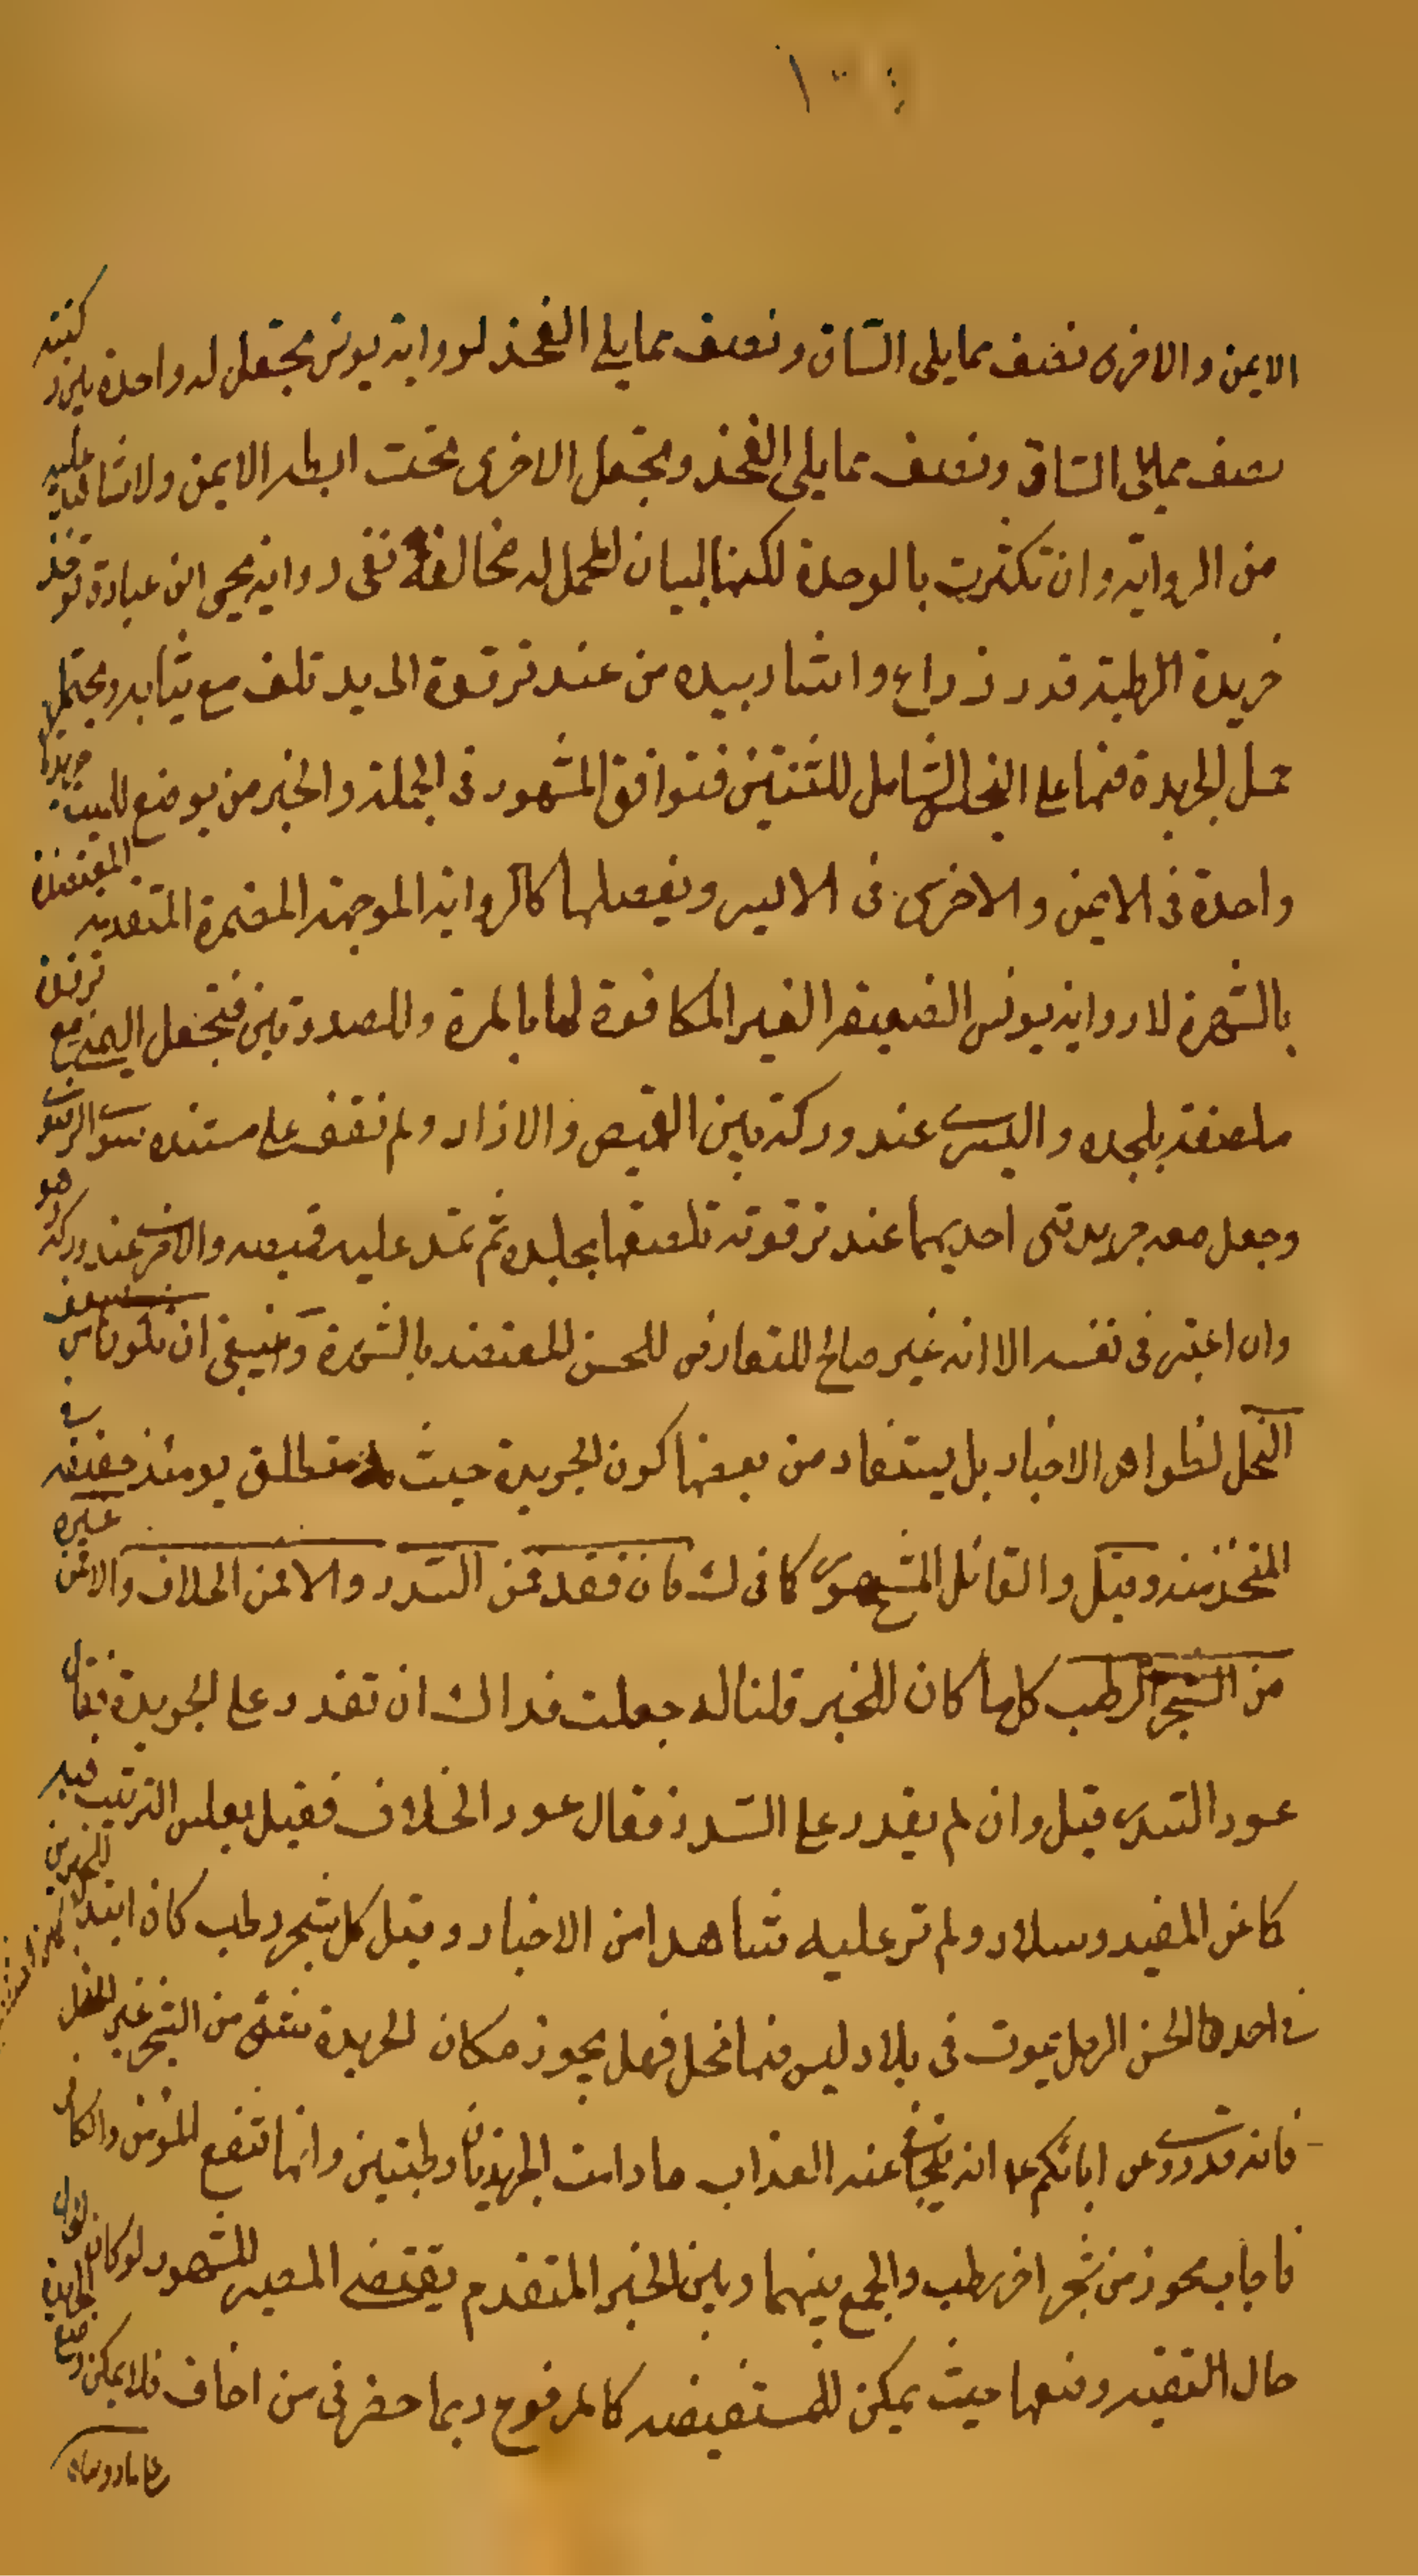 الايمن والاخرى نصف مما يلى الساق ونصف مما يلي الفخذ لرواية يونس يجعل له واحدة بين ركبتيه
نصف مما يلى الساق ونصف مما يلى الفخذ ويجعل الاخرى تحت ابطه الايمن ولا شاهد عليه
من الرواية وان تكثرت بالوحدة لكنها لبيان المحل له مخالفة ففى رواية يحيى ابن عبادة تؤخذ
جريدة الرطبة قدر ذراع واشار بيده من عند ترقوة الى يد تلف مع ثيابه ويحتمل
حمل الجريدة فيها على الشامل للثنتين فتوافق المشهور فى الجملة والخبر من يوضع للميت جريدتان
واحدة فى الايمن والاخرى فى الايسر ويفصلها كالرواية المضمرة المتقدمه المعتضدة
بالشهرة لا رواية يونس الضعيفه الغير المكافوة لها بالمرة وللصدوقين فتجعل اليمنى مع ترقوته
ملصقة بجلده واليسرى عند وركه بين القميص والازار ولم نقف على مستنده سوى الرضوى
وجعل معه جريدتى احديهما عند ترقوته تلصقها بجلده ثم تمد عليه قميصه والاخرى عند وركه وهو
وان اعتبر فى نفسه الا انه غير صالح للتعارض للحسن المعتضد بالشهرة وينبغى ان تكونا من سعف
النخل لظواهر الاخبار بل يستفاد من بعضها كون الجريدة حيث تطلق يومئذ حقيقه في
المتخذ منه وقيل والقائل المشهور كما فى ك فان فقد فمن السدر والا فمن الخلاف والا فمن غيره
من الشجر الرطب كلما كان للخبر قلنا له جعلت فداك ان لم نقدر على الجريدة فقال
عود السدر قيل وان لم يقدر على السدر فقال عود الخلاف فقيل بعكس الترتيب فيه
كما عن المفيد وسلار ولم تر عليه شاهدا من الاخبار وقيل كل شجر رطب كان ابتداء للخبرين
في احدهما الحسن الرجل يموت فى بلاد ليس فيها نخل فهل يجوز مكان الجريدة شئ من الشجر غير النخل
فانه قد روى عن ابائكم ع انه يتجافى عنه العذاب ما دامت الجريدتان رطبتين وانها تنفع المؤمن والكافر
فاجاب يجوز من شجر اخر رطب والجمع بينهما وبين الخبر المتقدم يقتضى المصير للمشهور لو كان
حال التقيه وضعها حيث يمكن للمستفيضه كالمرفوع ربما حضرنى من اخاف فلا يمكن وضع الجريدة